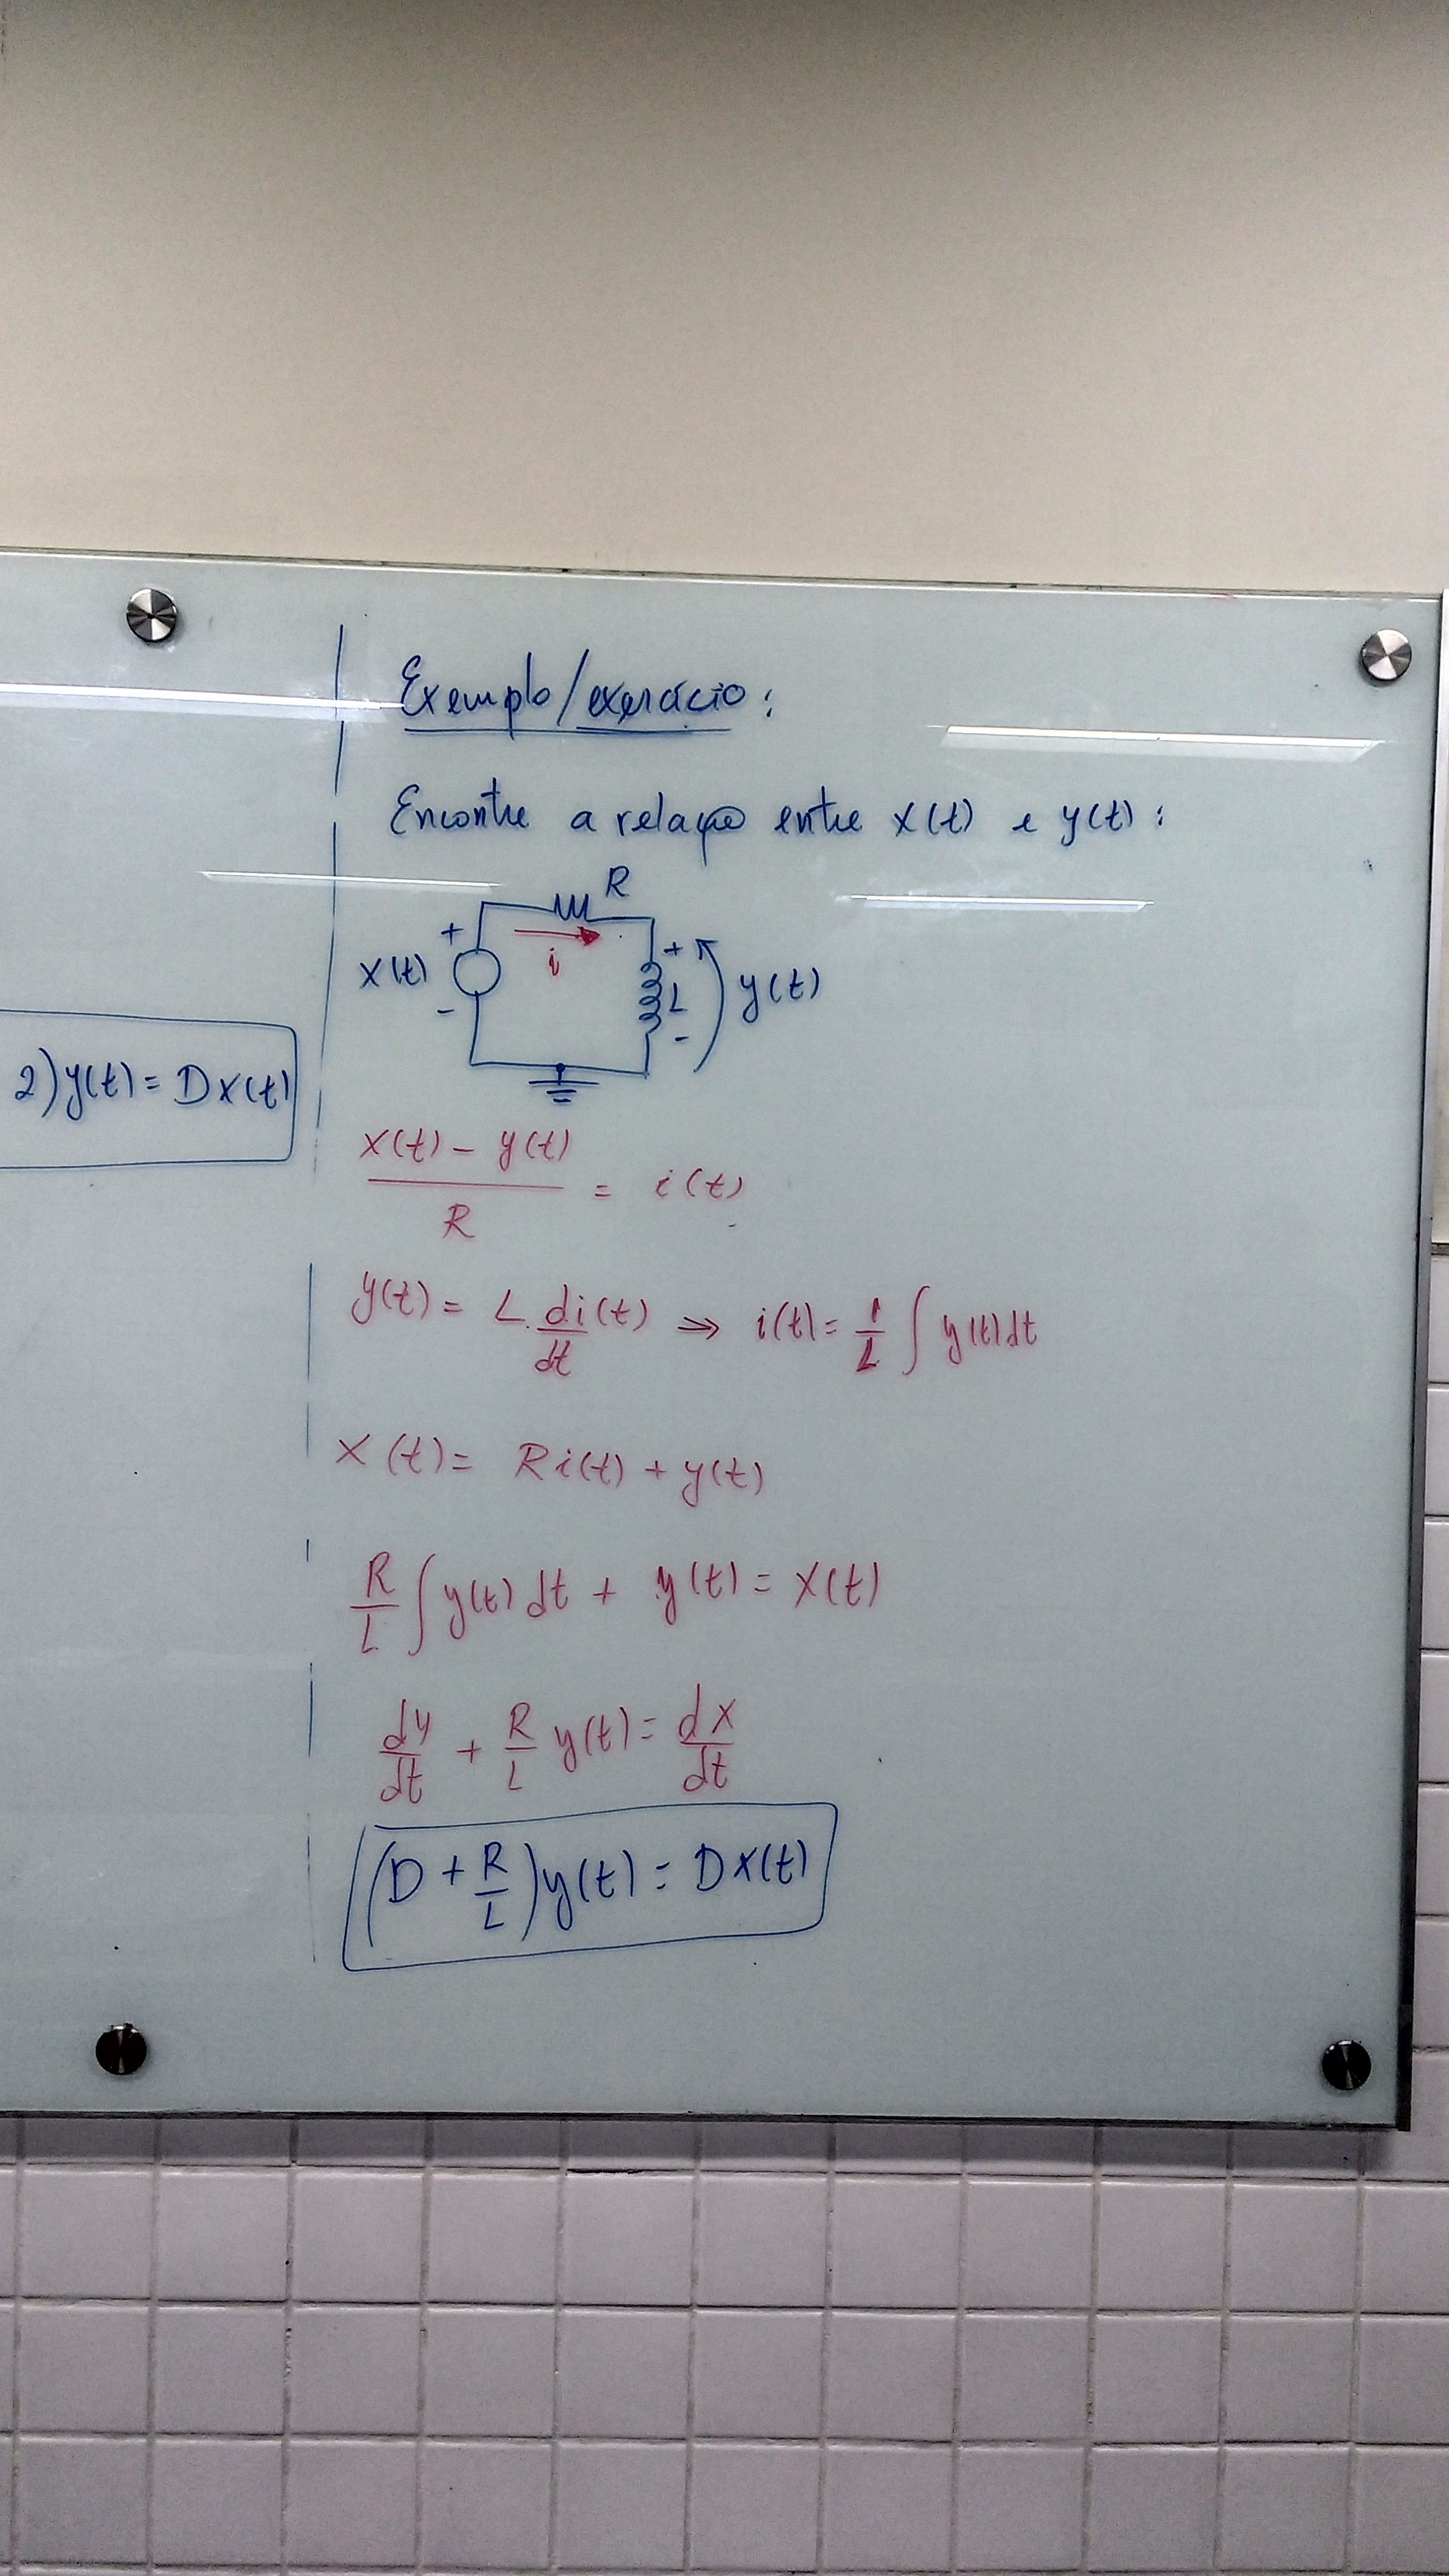 Exemplo/exercício:
Encontre a relação entre x(t) e y(t):
R
+ i +
x(t) L y(t)
- -
2) y(t) = D x(t)
x(t) - y(t) / R = i(t)
y(t) = L. di(t)/dt ⇒ i(t) = 1/L ∫ y(t) dt
x(t) = R i(t) + y(t)
R/L ∫ y(t) dt + y(t) = x(t)
dy/dt + R/L y(t) = dx/dt
(D + R/L) y(t) = D x(t)